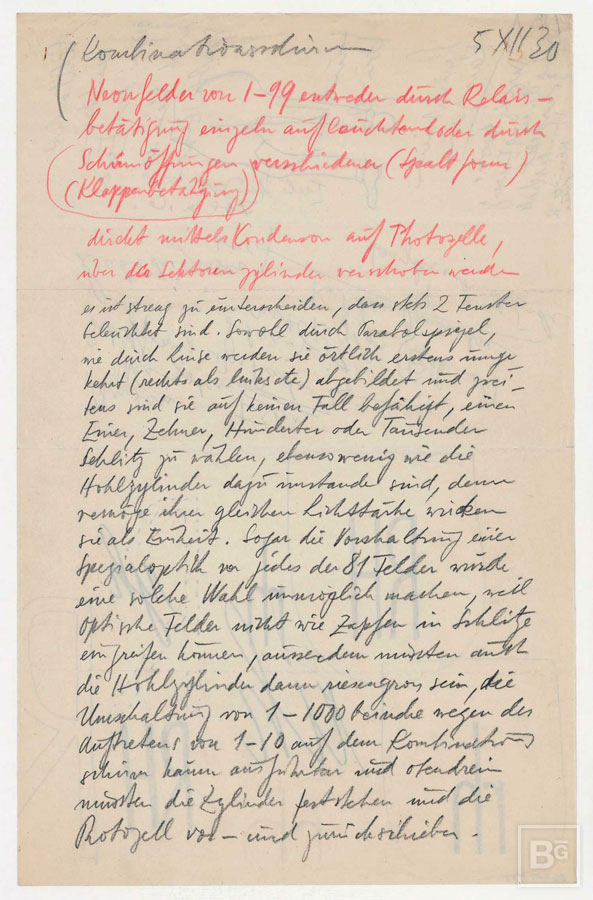 Kombinationsschirm 5 XII 30
Neonfelder von 1–99 entweder durch Relais-
betätigung einzeln aufleuchtend oder durch
Schirmöffnungen verschiedener (Spaltform)
(Klappenbetätigung)
direkt mittels Kondensor auf Photozelle,
über die Sektorenzylinder verschoben werden
es ist streng zu unterscheiden, dass stets 2 Fenster
beleuchtet sind. Sowohl durch Parabolspiegel,
wie durch Linse werden sie örtlich erstens umge
kehrt (rechts als links etc) abgebildet und zwei-
tens sind sie auf keinen Fall befähigt, einen
Einer, Zehner, Hunderter oder Tausender
Schlitz zu wählen, ebensowenig wie die
Hohlzylinder dazu imstande sind, denn
vermöge ihrer gleichen Lichtstärke wirken
sie als Einheit. Sogar die Vorschaltung einer
Spezialoptik vor jedes der 81 Felder würde
eine solche Wahl unmöglich machen, weil
optische Felder nicht wie Zapfen in Schlitze
eingreifen können, ausserdem müssten auch
die Hohlzylinder dann riesengross sein, die
Umschaltung von 1–1000 beinahe wegen des
Auftretens von 1–10 auf dem Kombinations
schirm kaum ausführbar und obendrein
müssten die Zylinder feststehen und die
Fotozell vor- und zurückschieben.
BG